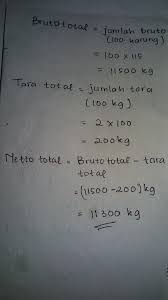 Bruto total = jumlah bruto
(100 karung)
= 100 x 115
= 11500 kg
Tara total = jumlah tara
(100 kg)
= 2 x 100
= 200kg
Netto total = Bruto total - tara
total
= (11500 - 200) kg
= 11300 kg